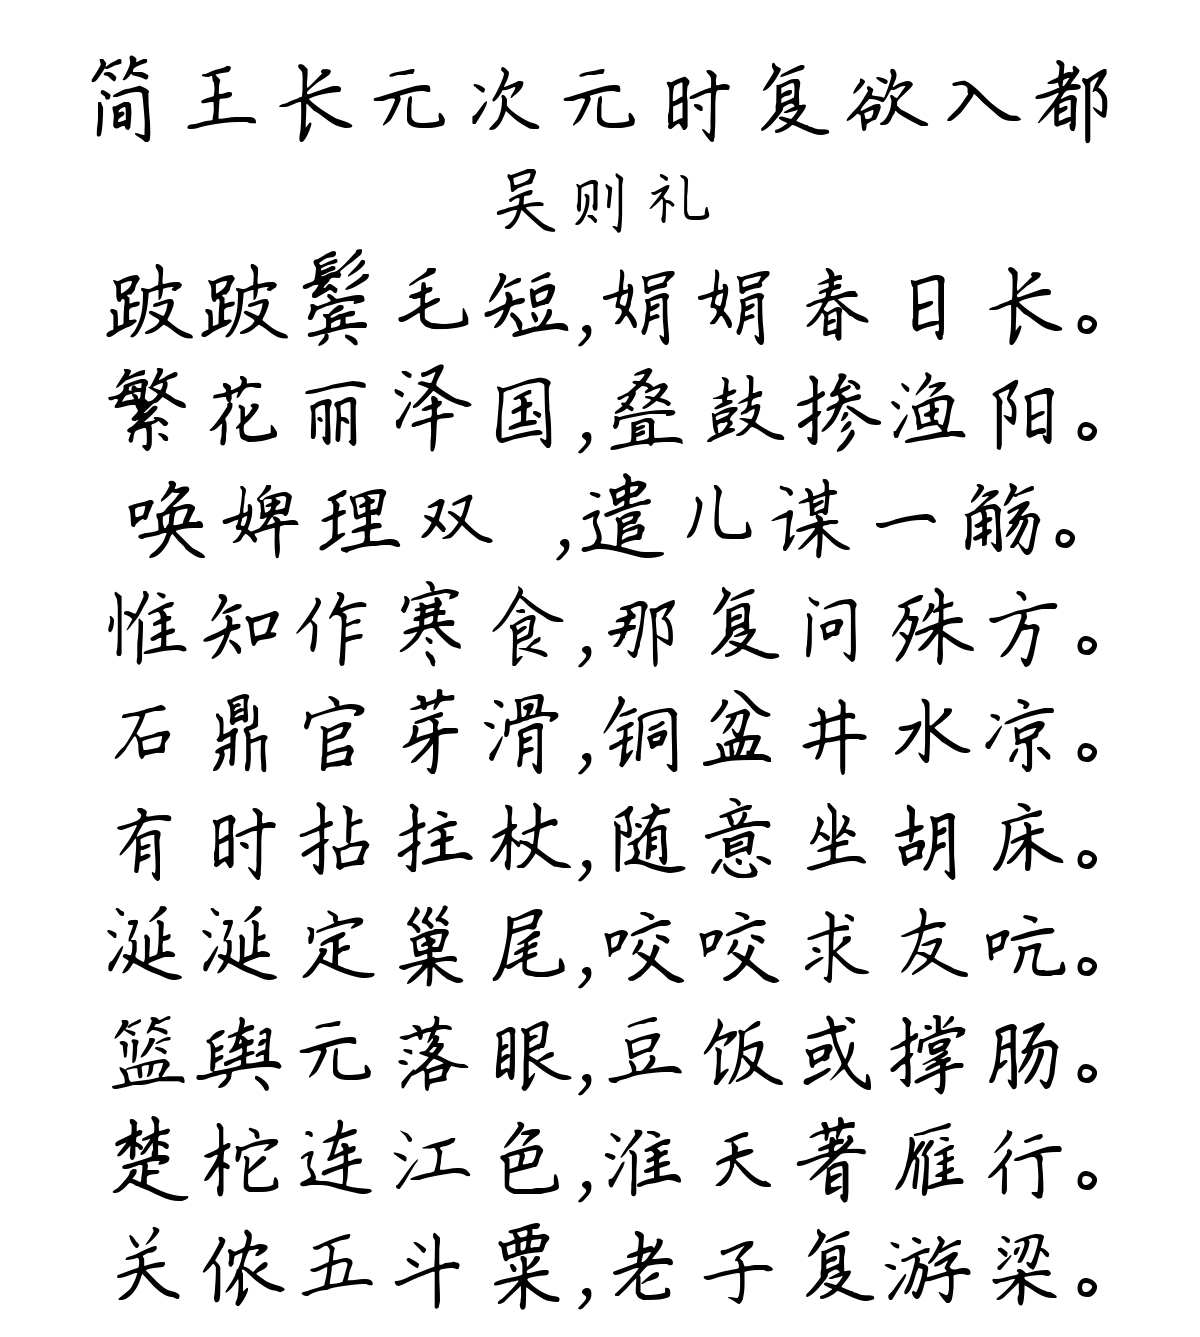 简王长元次元时复欲入都
吴则礼
跛跛鬓毛短,娟娟春日长。
繁花丽泽国,叠鼓掺渔阳。
唤婢理双 ,遣儿谋一觞。
惟知作寒食,那复问殊方。
石鼎官芽滑,铜盆井水凉。
有时拈拄杖,随意坐胡床。
涎涎定巢尾,咬咬求友吭。
篮舆元落眼,豆饭或撑肠。
楚柁连江色,淮天著雁行。
关侬五斗粟,老子复游梁。